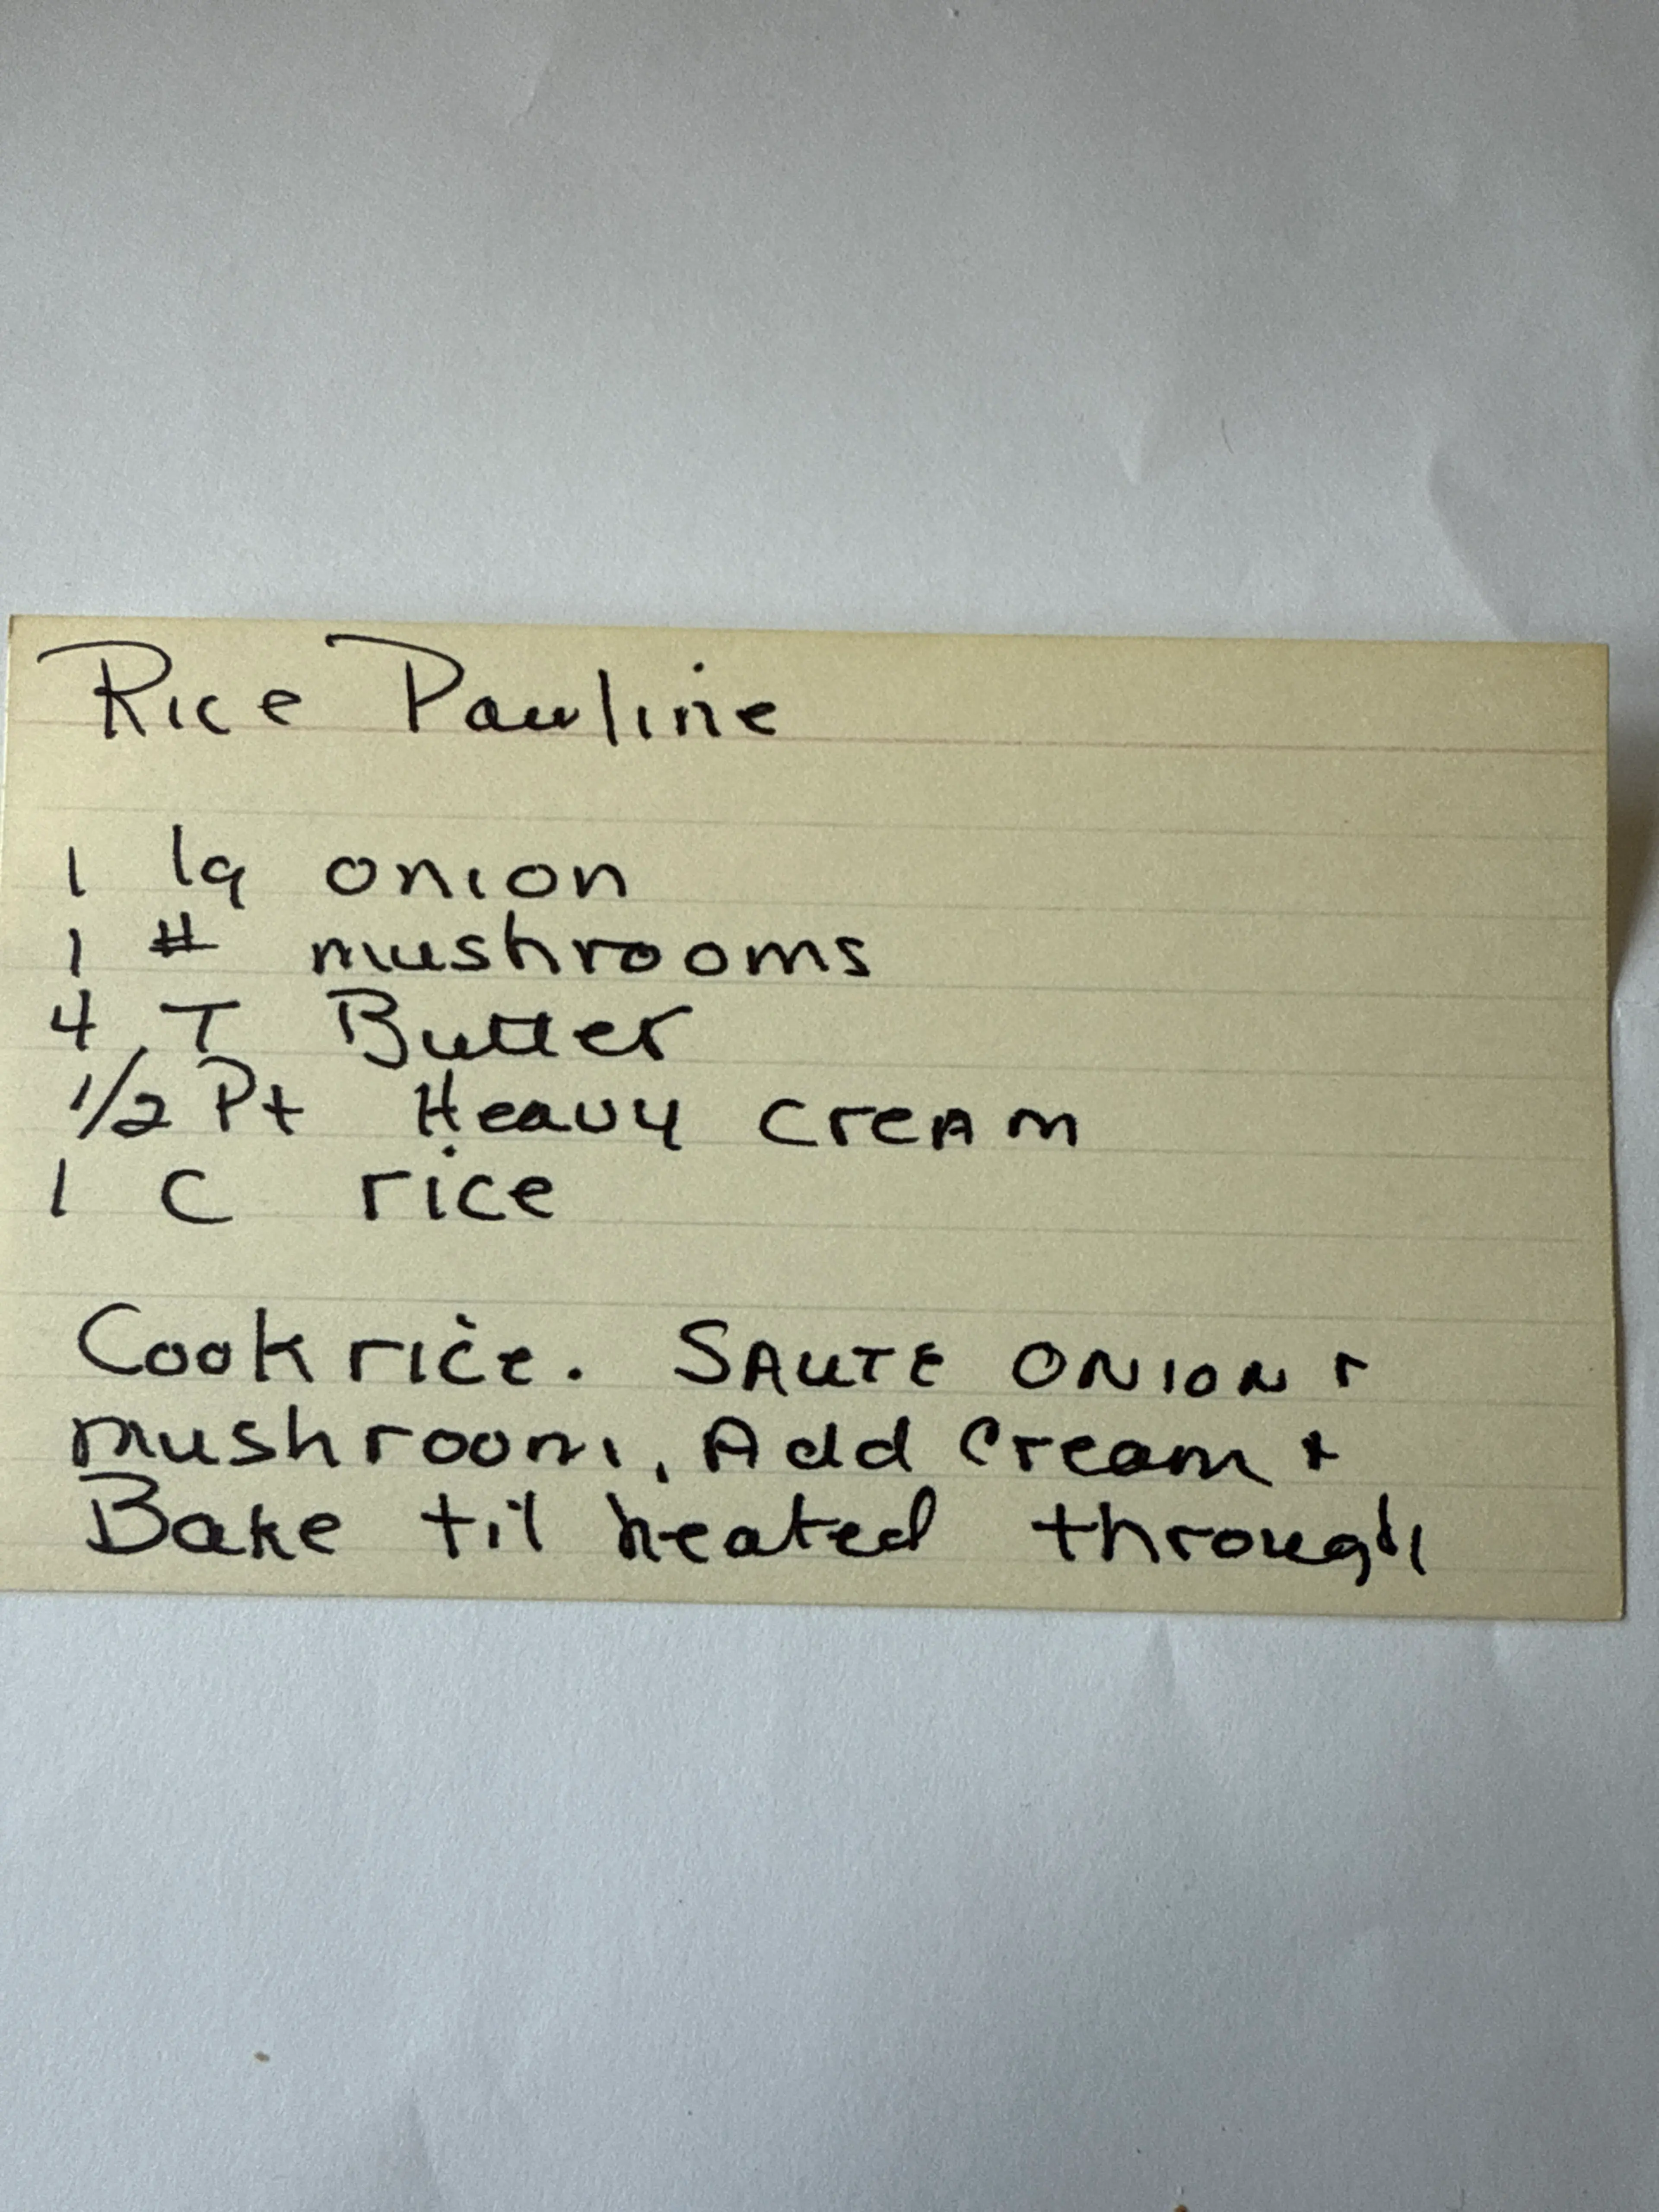 Rice Pauline
1 lg onion
1 # mushrooms
4 T Butter
1/2 Pt Heavy CreAm
1 C rice
Cook rice. SAUTE ONION +
mushrooms, Add Cream +
Bake til heated through